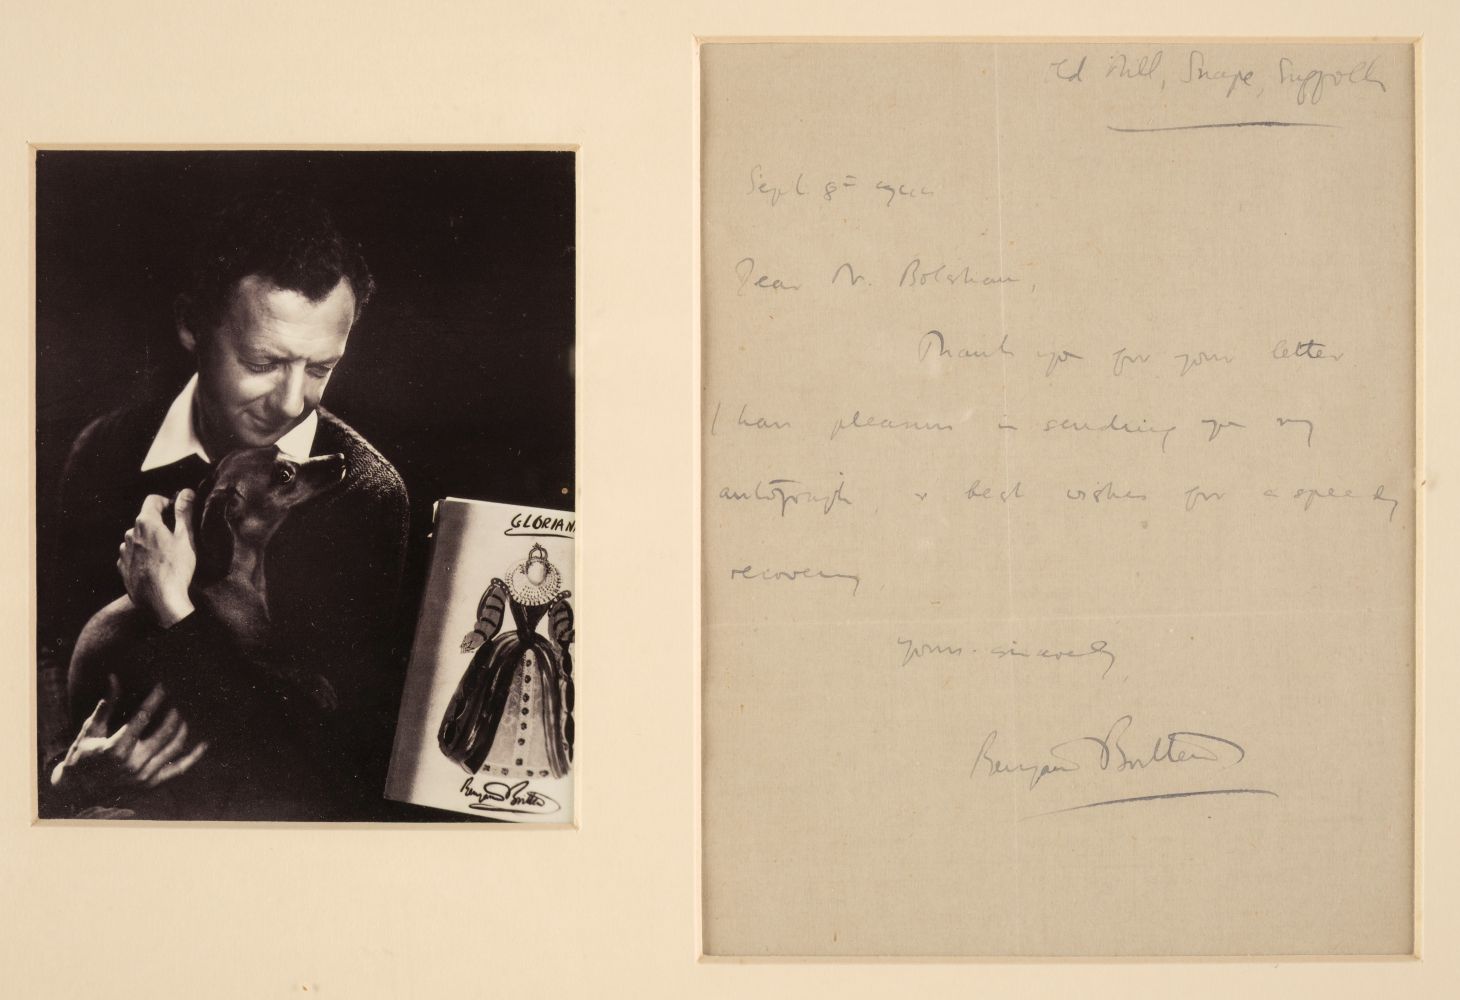 GLORIAN
Benjamin Britten
Old Mill, Snape, Suffolk
Sept. 8th
Dear Mr. Bolsham,
Thank you for your letter
I have pleasure in sending you my
autograph, & best wishes for a speedy
recovery.
Yours sincerely,
Benjamin Britten